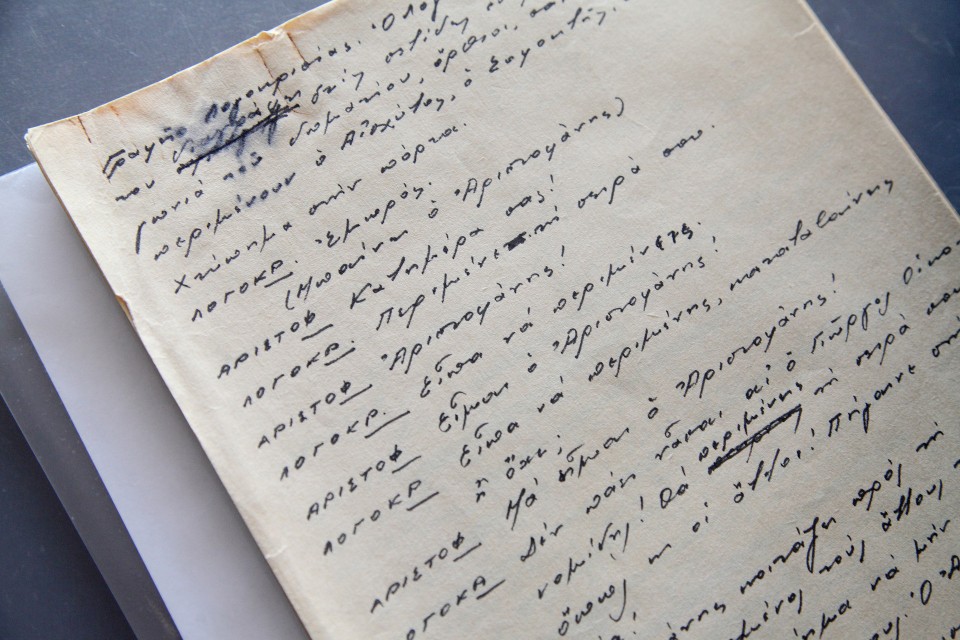 Γραφεῖο λογοκρισίας. Ὁ λογ
που
γωνιά τοῦ δωματίου, ὄρθιοι,
περιμένουν ὁ Αἰσχύλος, ὁ Σοφοκλῆς,
Χτύπημα στήν πόρτα.
ΛΟΓΟΚΡ. Ἐμπρός.
(Μπαίνει ὁ Ἀριστοφάνης)
ΑΡΙΣΤΟΦ Καλημέρα σας!
ΛΟΓΟΚΡ. Περιμένετε τή σειρά σου.
ΑΡΙΣΤΟΦ Ἀριστοφάνης!
ΛΟΓΟΚΡ. Εἶπα νά περιμένετε.
ΑΡΙΣΤΟΦ Εἶμαι ὁ Ἀριστοφάνης!
ΛΟΓΟΚΡ Εἶπα νά περιμένης, καταλαβαίνεις
ἤ ὄχι;
ΑΡΙΣΤΟΦ Μά εἶμαι ὁ Ἀριστοφάνης!
ΛΟΓΟΚΡ Δέν πάει νἆσαι καί ὁ Γιῶργος Οἰκο-
νομίδης! Θά περιμένης τή σειρά σου
ὅπως κι οἱ ἄλλοι! Πήγαινε στή
κοιτάζει πρός τή
τούς ἄλλους
νά μήν
Ὁ Ἀ